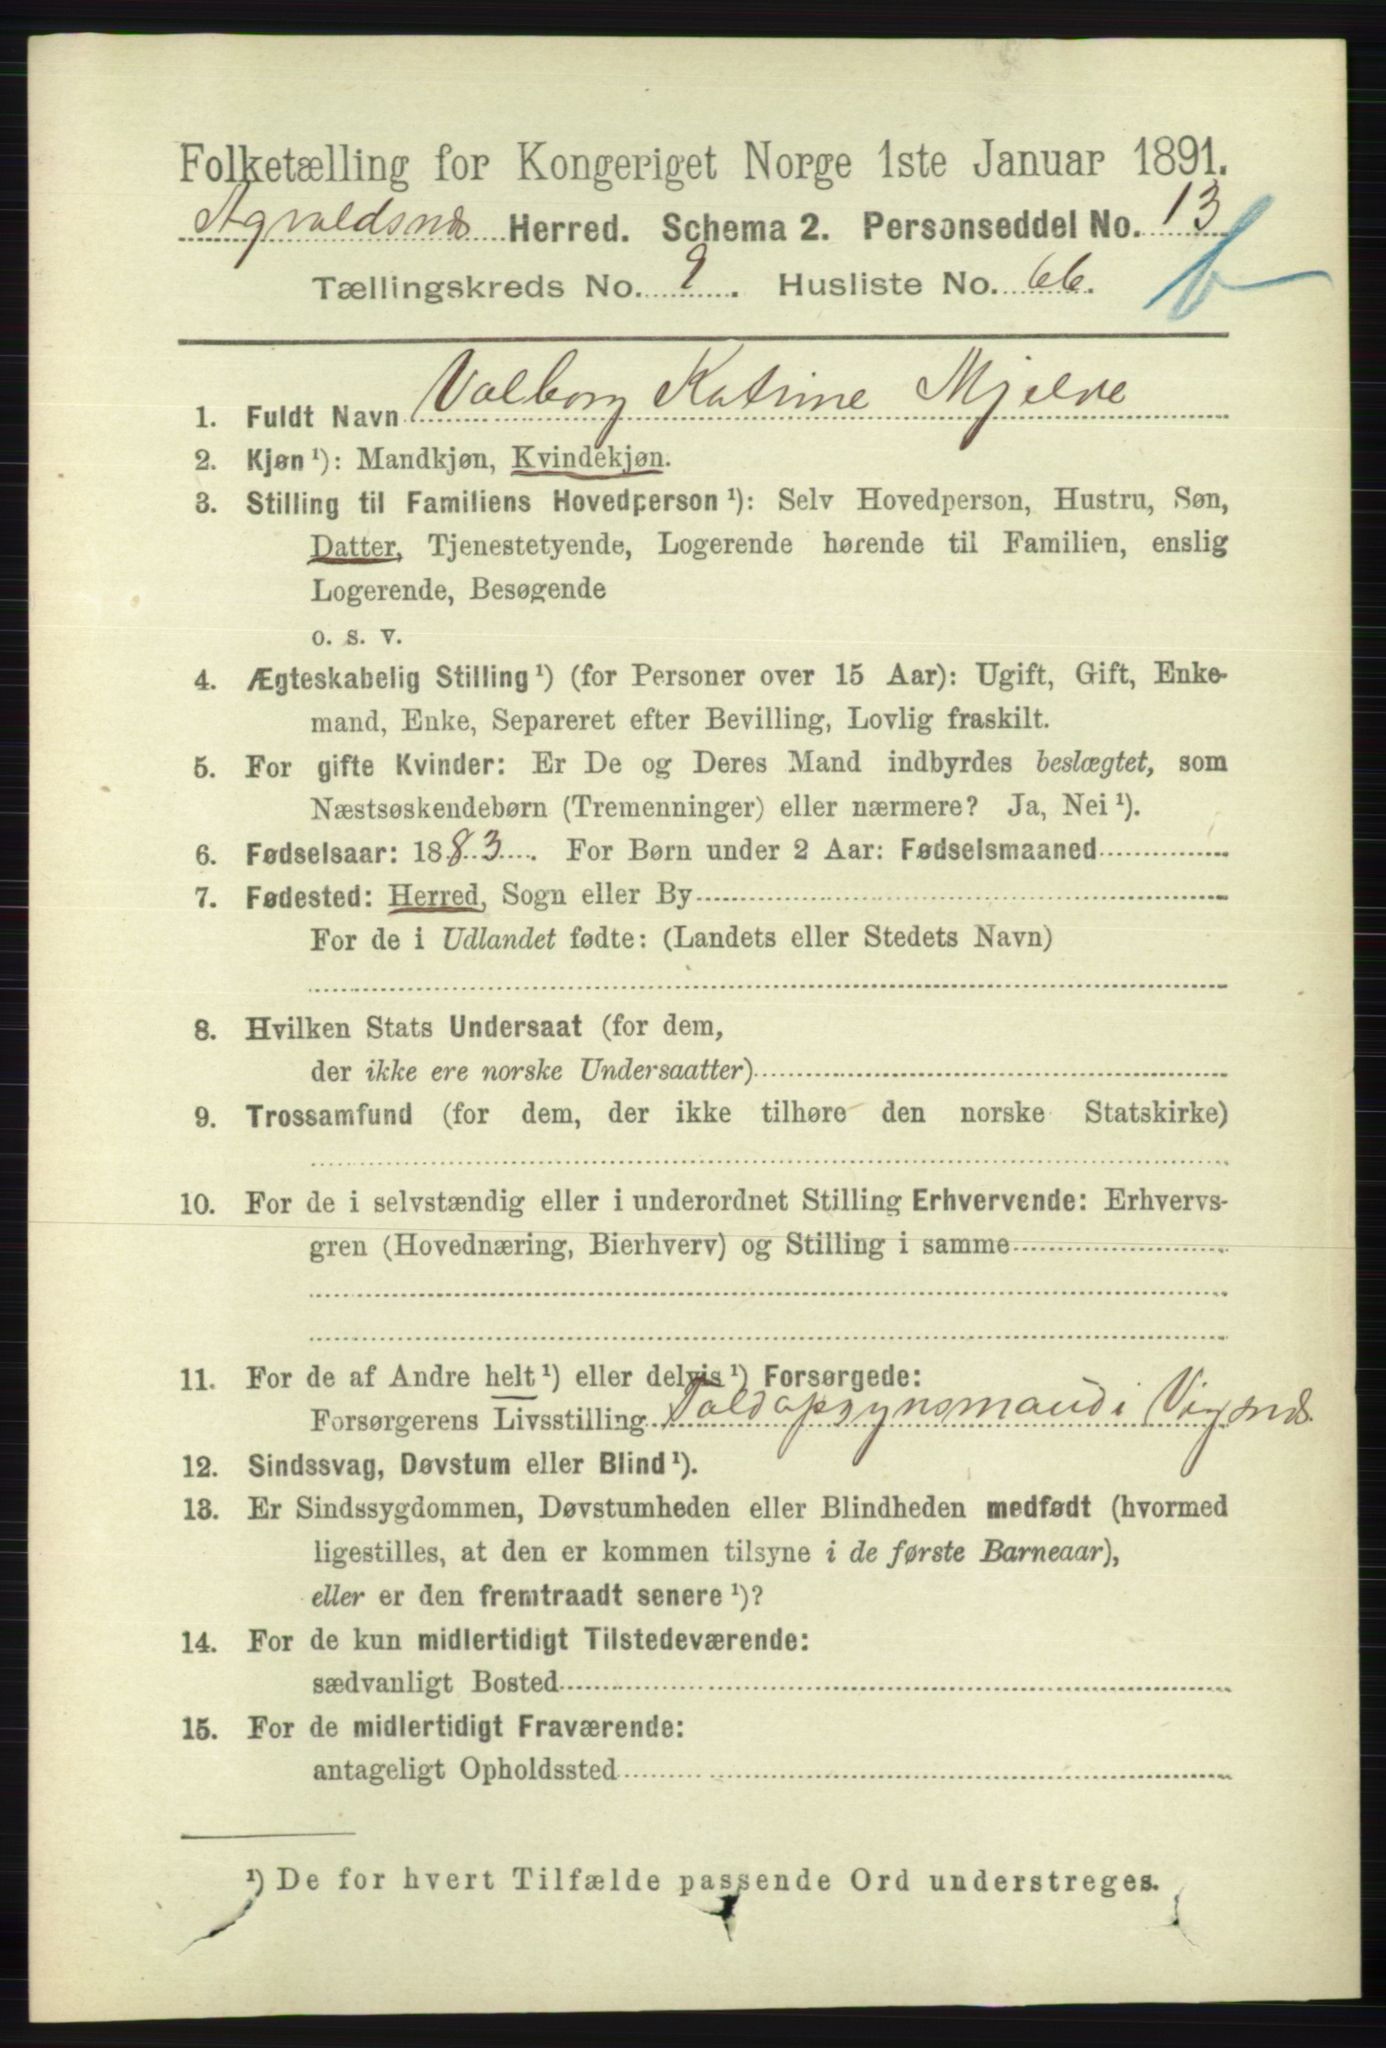 Folketælling for Kongeriget Norge 1ste Januar 1891.
Agvaldsnæs Herred. Schema 2. Personseddel No. 13
Tællingskreds No. 9. Husliste No. 66.
b
1. Fuldt Navn Valborg Katrine Mjelve
2. Kjøn ¹): Mandkjøn, Kvindekjøn.
3. Stilling til Familiens Hovedperson ¹): Selv Hovedperson, Hustru, Søn,
Datter, Tjenestetyende, Logerende hørende til Familien, enslig
Logerende, Besøgende
o. s. v.
4. Ægteskabelig Stilling ¹) (for Personer over 15 Aar): Ugift, Gift, Enke-
mand, Enke, Separeret efter Bevilling, Lovlig fraskilt.
5. For gifte Kvinder: Er De og Deres Mand indbyrdes beslægtet, som
Næstsøskendebørn (Tremenninger) eller nærmere? Ja, Nei ¹).
6. Fødselsaar: 1883. For Børn under 2 Aar: Fødselsmaaned
7. Fødested: Herred, Sogn eller By
For de i Udlandet fødte: (Landets eller Stedets Navn)
8. Hvilken Stats Undersaat (for dem,
der ikke ere norske Undersaatter)
9. Trossamfund (for dem, der ikke tilhøre den norske Statskirke)
10. For de i selvstændig eller i underordnet Stilling Erhvervende: Erhvervs-
gren (Hovednæring, Bierhverv) og Stilling i samme
11. For de af Andre helt ¹) eller delvis ¹) Forsørgede:
Forsørgerens Livsstilling Toldopsynsmand i Vigsnæs
12. Sindssvag, Døvstum eller Blind ¹).
13. Er Sindssygdommen, Døvstumheden eller Blindheden medfødt (hvormed
ligestilles, at den er kommen tilsyne i de første Barneaar),
eller er den fremtraadt senere ¹)?
14. For de kun midlertidigt Tilstedeværende:
sædvanligt Bosted
15. For de midlertidigt Fraværende:
antageligt Opholdssted
¹) De for hvert Tilfælde passende Ord understreges.